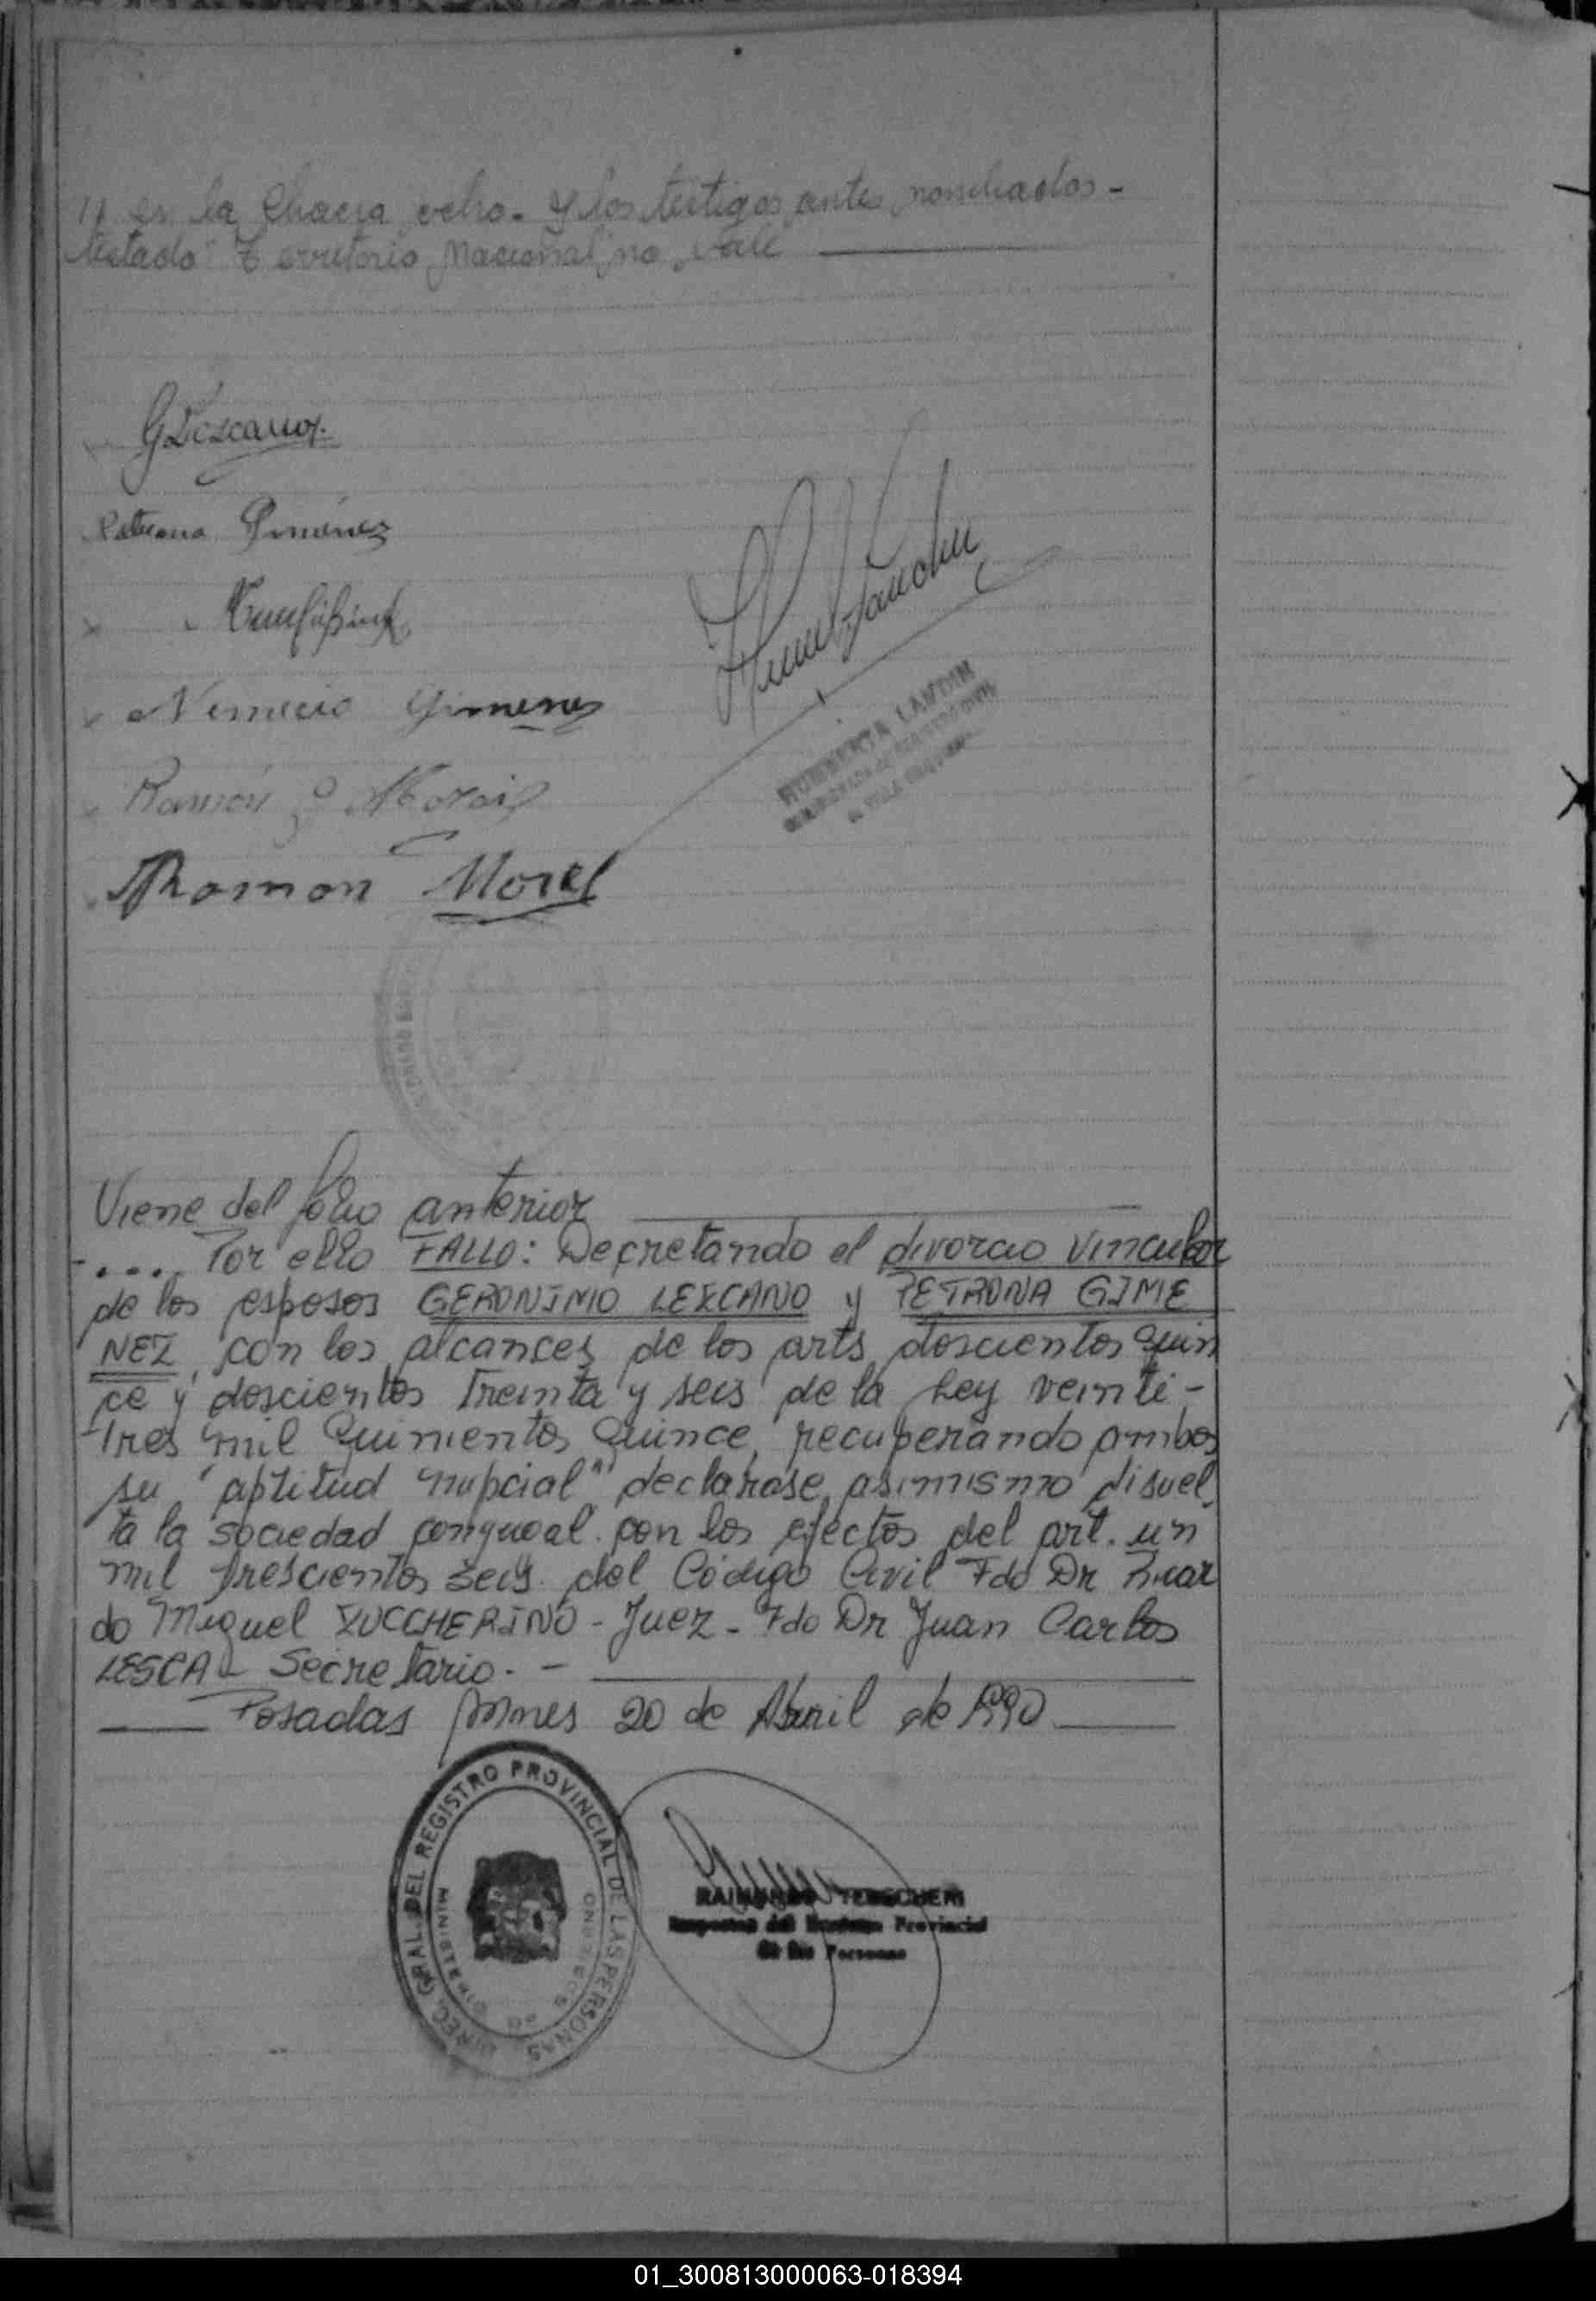 en la Chacra ocho.- Y los testigos antes nombrados-
testado: Territorio Nacional, no vale
G Lescano
Petrona Gimenez
Nemecio Gimenez
Ramón Morais
Ramon Morel
HUMBERTA LANDIN
Viene del folio anterior
.... Por ello FALLO: Decretando el divorcio vincular
de los esposos GERONIMO LEXCANO y PETRONA GIME
NEZ, con los alcances de los arts doscientos quin
ce y doscientos Treinta y seis de la Ley veinti-
Tres mil quinientos quince, recuperando ambos
su "aptitud nupcial" declarase, asimismo disuel
ta la sociedad conyugal con los efectos del art. un
mil trescientos seis del Código Civil Fdo Dr Ricar
do Miguel ZUCCHERINO - Juez - Fdo Dr Juan Carlos
LESCA - Secretario. -
Posadas Mnes 20 de Abril de 1990
DIREC. GRAL. DEL REGISTRO PROVINCIAL DE LAS PERSONAS
MINISTERIO DE GOBIERNO
RAIMUNDO
Provincial
de las Personas
01_300813000063-018394